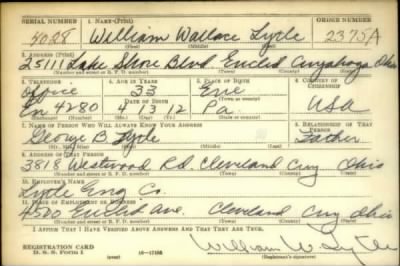 SERIAL NUMBER 1. NAME (Print) ORDER NUMBER
4028 William Wallace Lytle 2375A
(First) (Middle) (Last)
2. ADDRESS (Print)
25111 Lake Shore Blvd Euclid Cuyahoga Ohio
(Number and street or R. F. D. number) (Town) (County) (State)
3. TELEPHONE 4. AGE IN YEARS 5. PLACE OF BIRTH 6. COUNTRY OF CITIZENSHIP
Office 33 Erie
En 4280 4 13 12 Pa. USA
7. NAME OF PERSON WHO WILL ALWAYS KNOW YOUR ADDRESS RELATIONSHIP OF THAT PERSON
George B Lytle Father
(Mr., Mrs., Miss) (First) (Middle) (Last)
8. ADDRESS OF THAT PERSON
3818 Westwood Rd. Cleveland Cuy Ohio
(Number and street or R. F. D. number) (Town) (County) (State)
10. EMPLOYER'S NAME
Lytle Eng Co.
11. PLACE OF EMPLOYMENT OR BUSINESS
4500 Euclid Ave. Cleveland Cuy Ohio
(Number and street or R. F. D. number) (Town) (County) (State)
I AFFIRM THAT I HAVE VERIFIED ABOVE ANSWERS AND THAT THEY ARE TRUE.
REGISTRATION CARD
D. S. S. Form 1 16-17105 William W Lytle
(Registrant's signature)